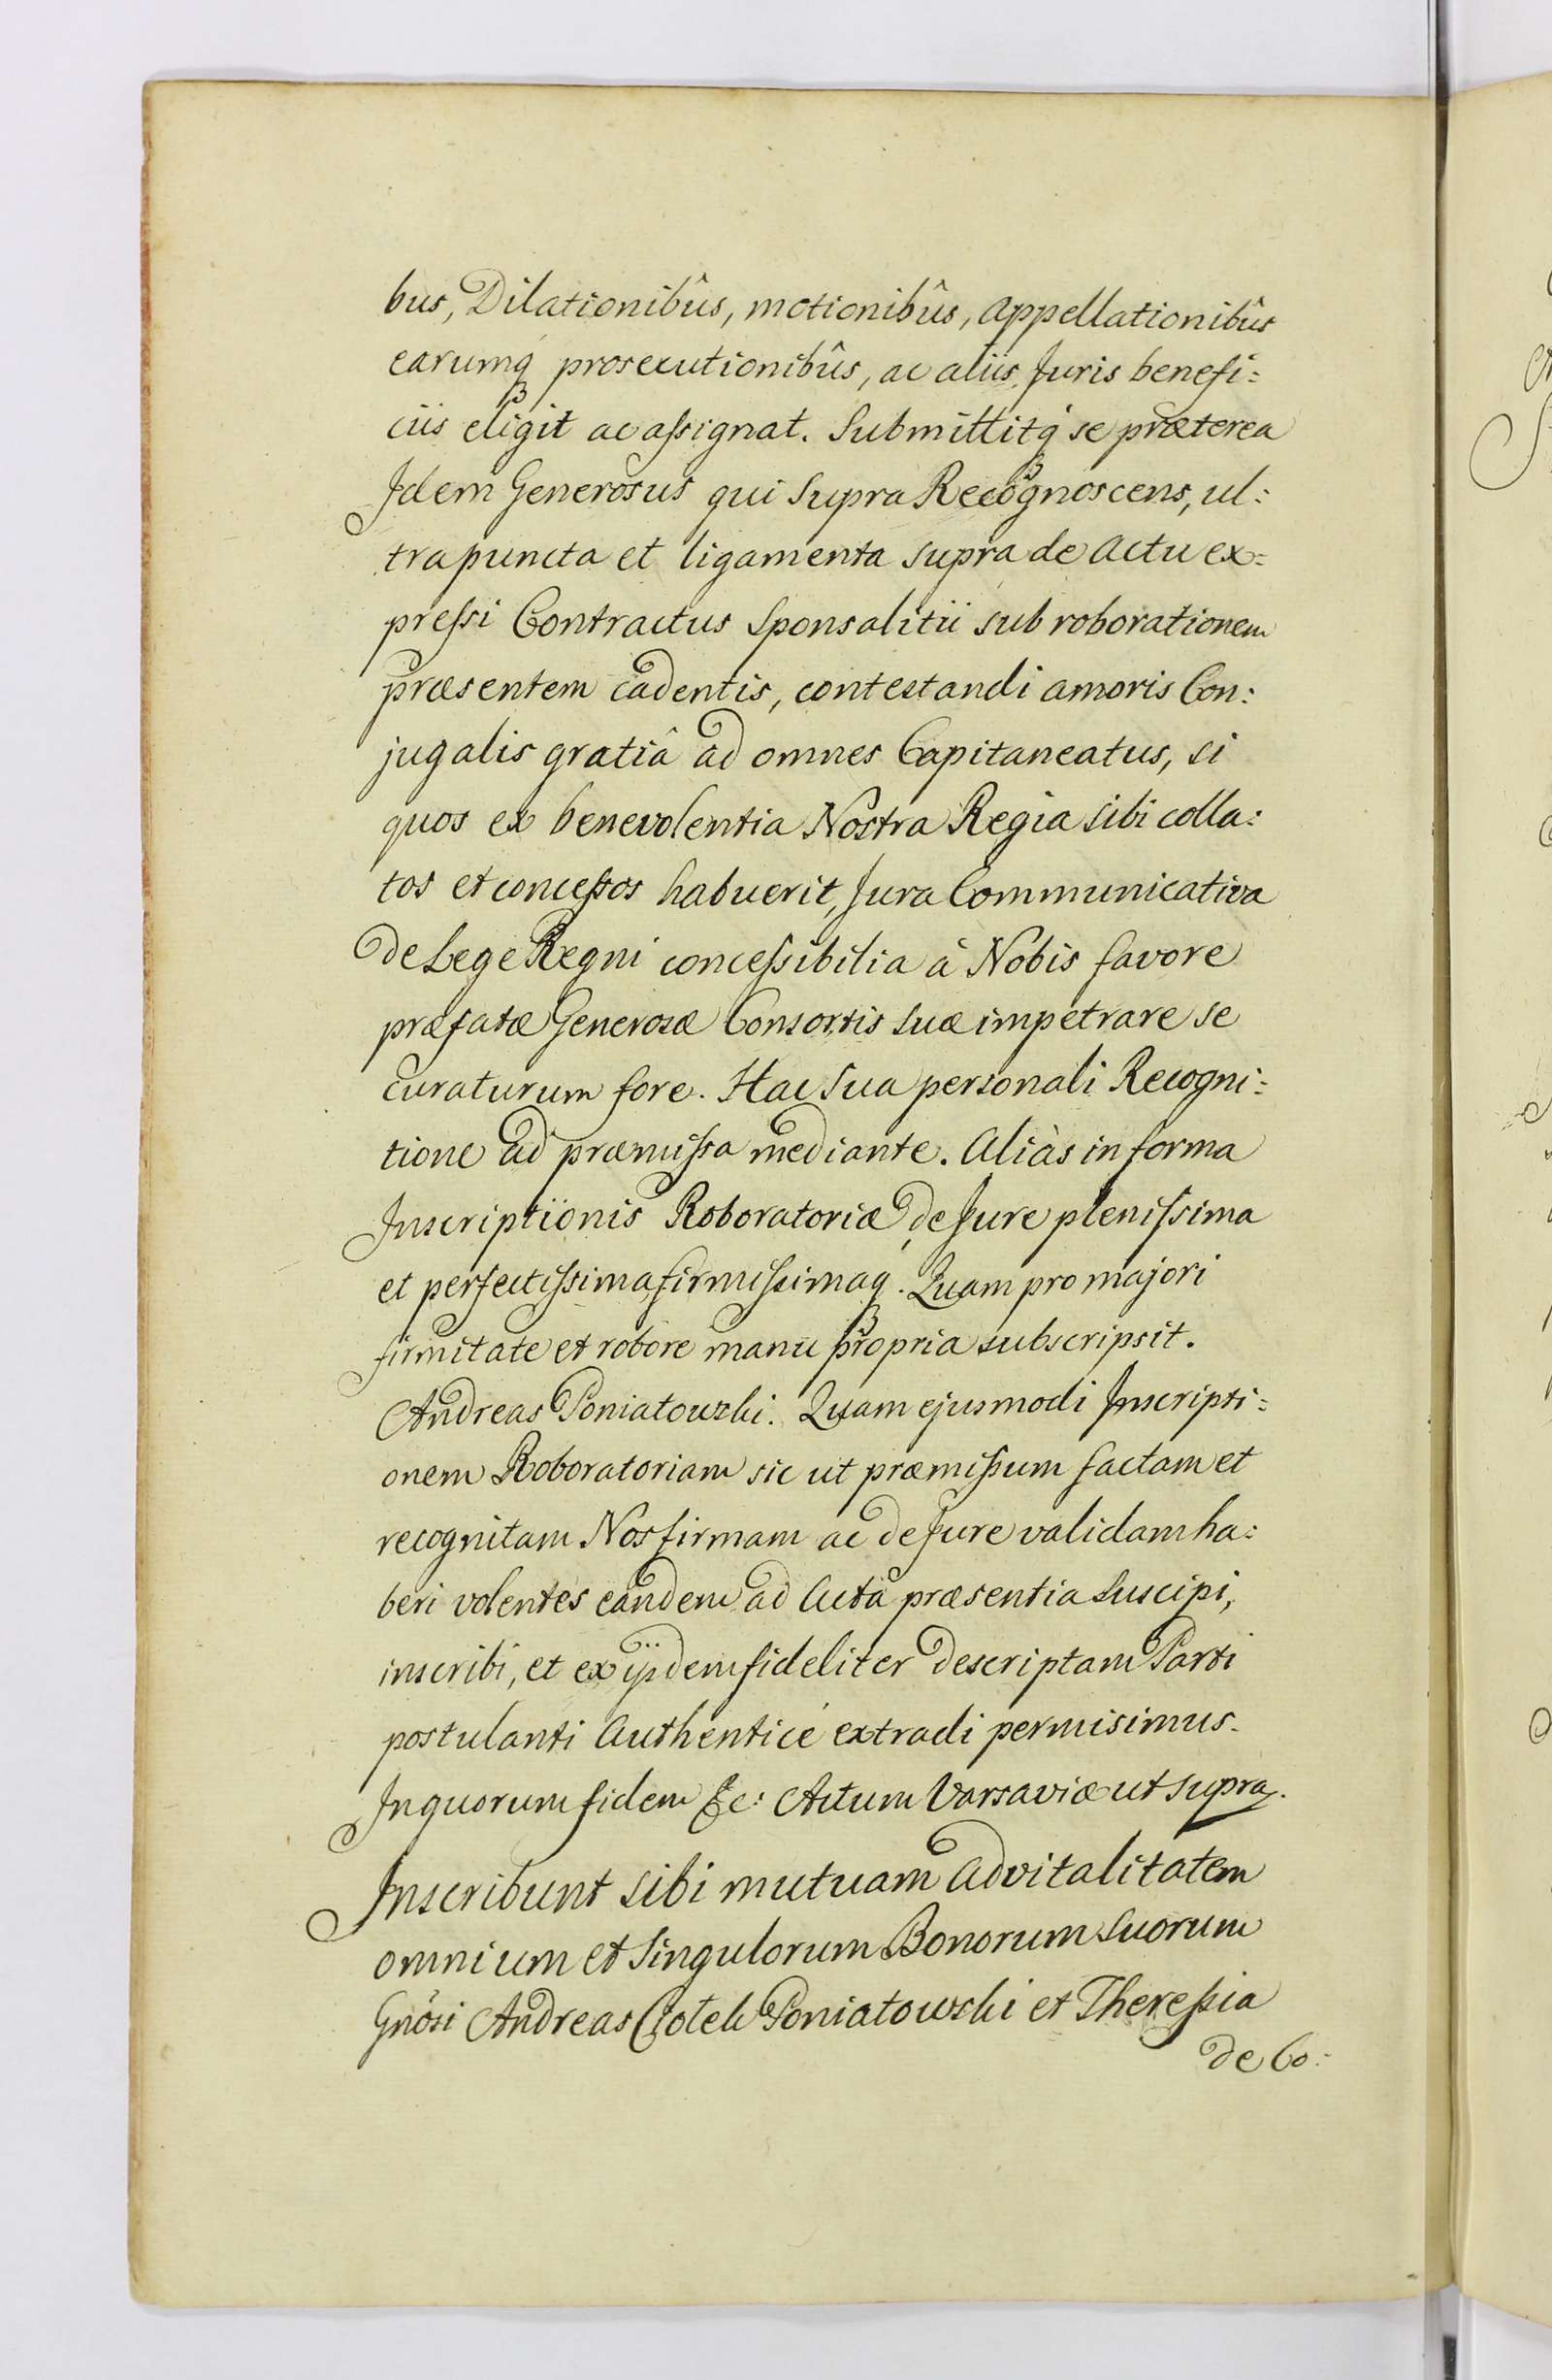 bus, Dilationibûs, motionibûs, Appellationibûs
earumq prosecutionibûs, ac aliis Juris benefi:
ciis eligit ac assignat. Submittitq se præterea
Idem Generosus qui supra Recognoscens, ul:
tra puncta et ligamenta supra de Actu ex:
pressi Contractus Sponsalitii sub roborationem
præsentem cadentis, contestandi amoris Con:
jugalis gratiâ ad omnes Capitaneatus, si
quos ex benevolentia Nostra Regia sibi colla:
tos et concessos habuerit, Jura Communicativa
de Lege Regni concessibilia à Nobis favore
præfatæ Generosæ Consortis suæ impetrare se
curaturum fore. Hac sua personali Recogni:
tione ad præmissa mediante. Aliàs in forma
Inscriptionis Roboratoriæ, de Jure plenissima
et perfectissima firmissimaq. Quam pro majori
firmitate et robore manu propria subscripsit.
Andreas Poniatowski. Quam ejusmodi Inscripti:
onem Roboratoriam sic ut præmissum factam et
recognitam Nos firmam ac de Jure validam ha:
beri volentes eandem ad Acta præsentia suscipi,
inscribi, et ex ijsdem fideliter descriptam Parti
postulanti Authenticè extradi permisimus.
In quorum fidem &c: Actum Varsaviæ ut supra.
Inscribunt sibi mutuam advitalitatem
omnium et singulorum Bonorum suorum
Gnösi Andreas Ciołek Poniatowski et Theressia
de Co: